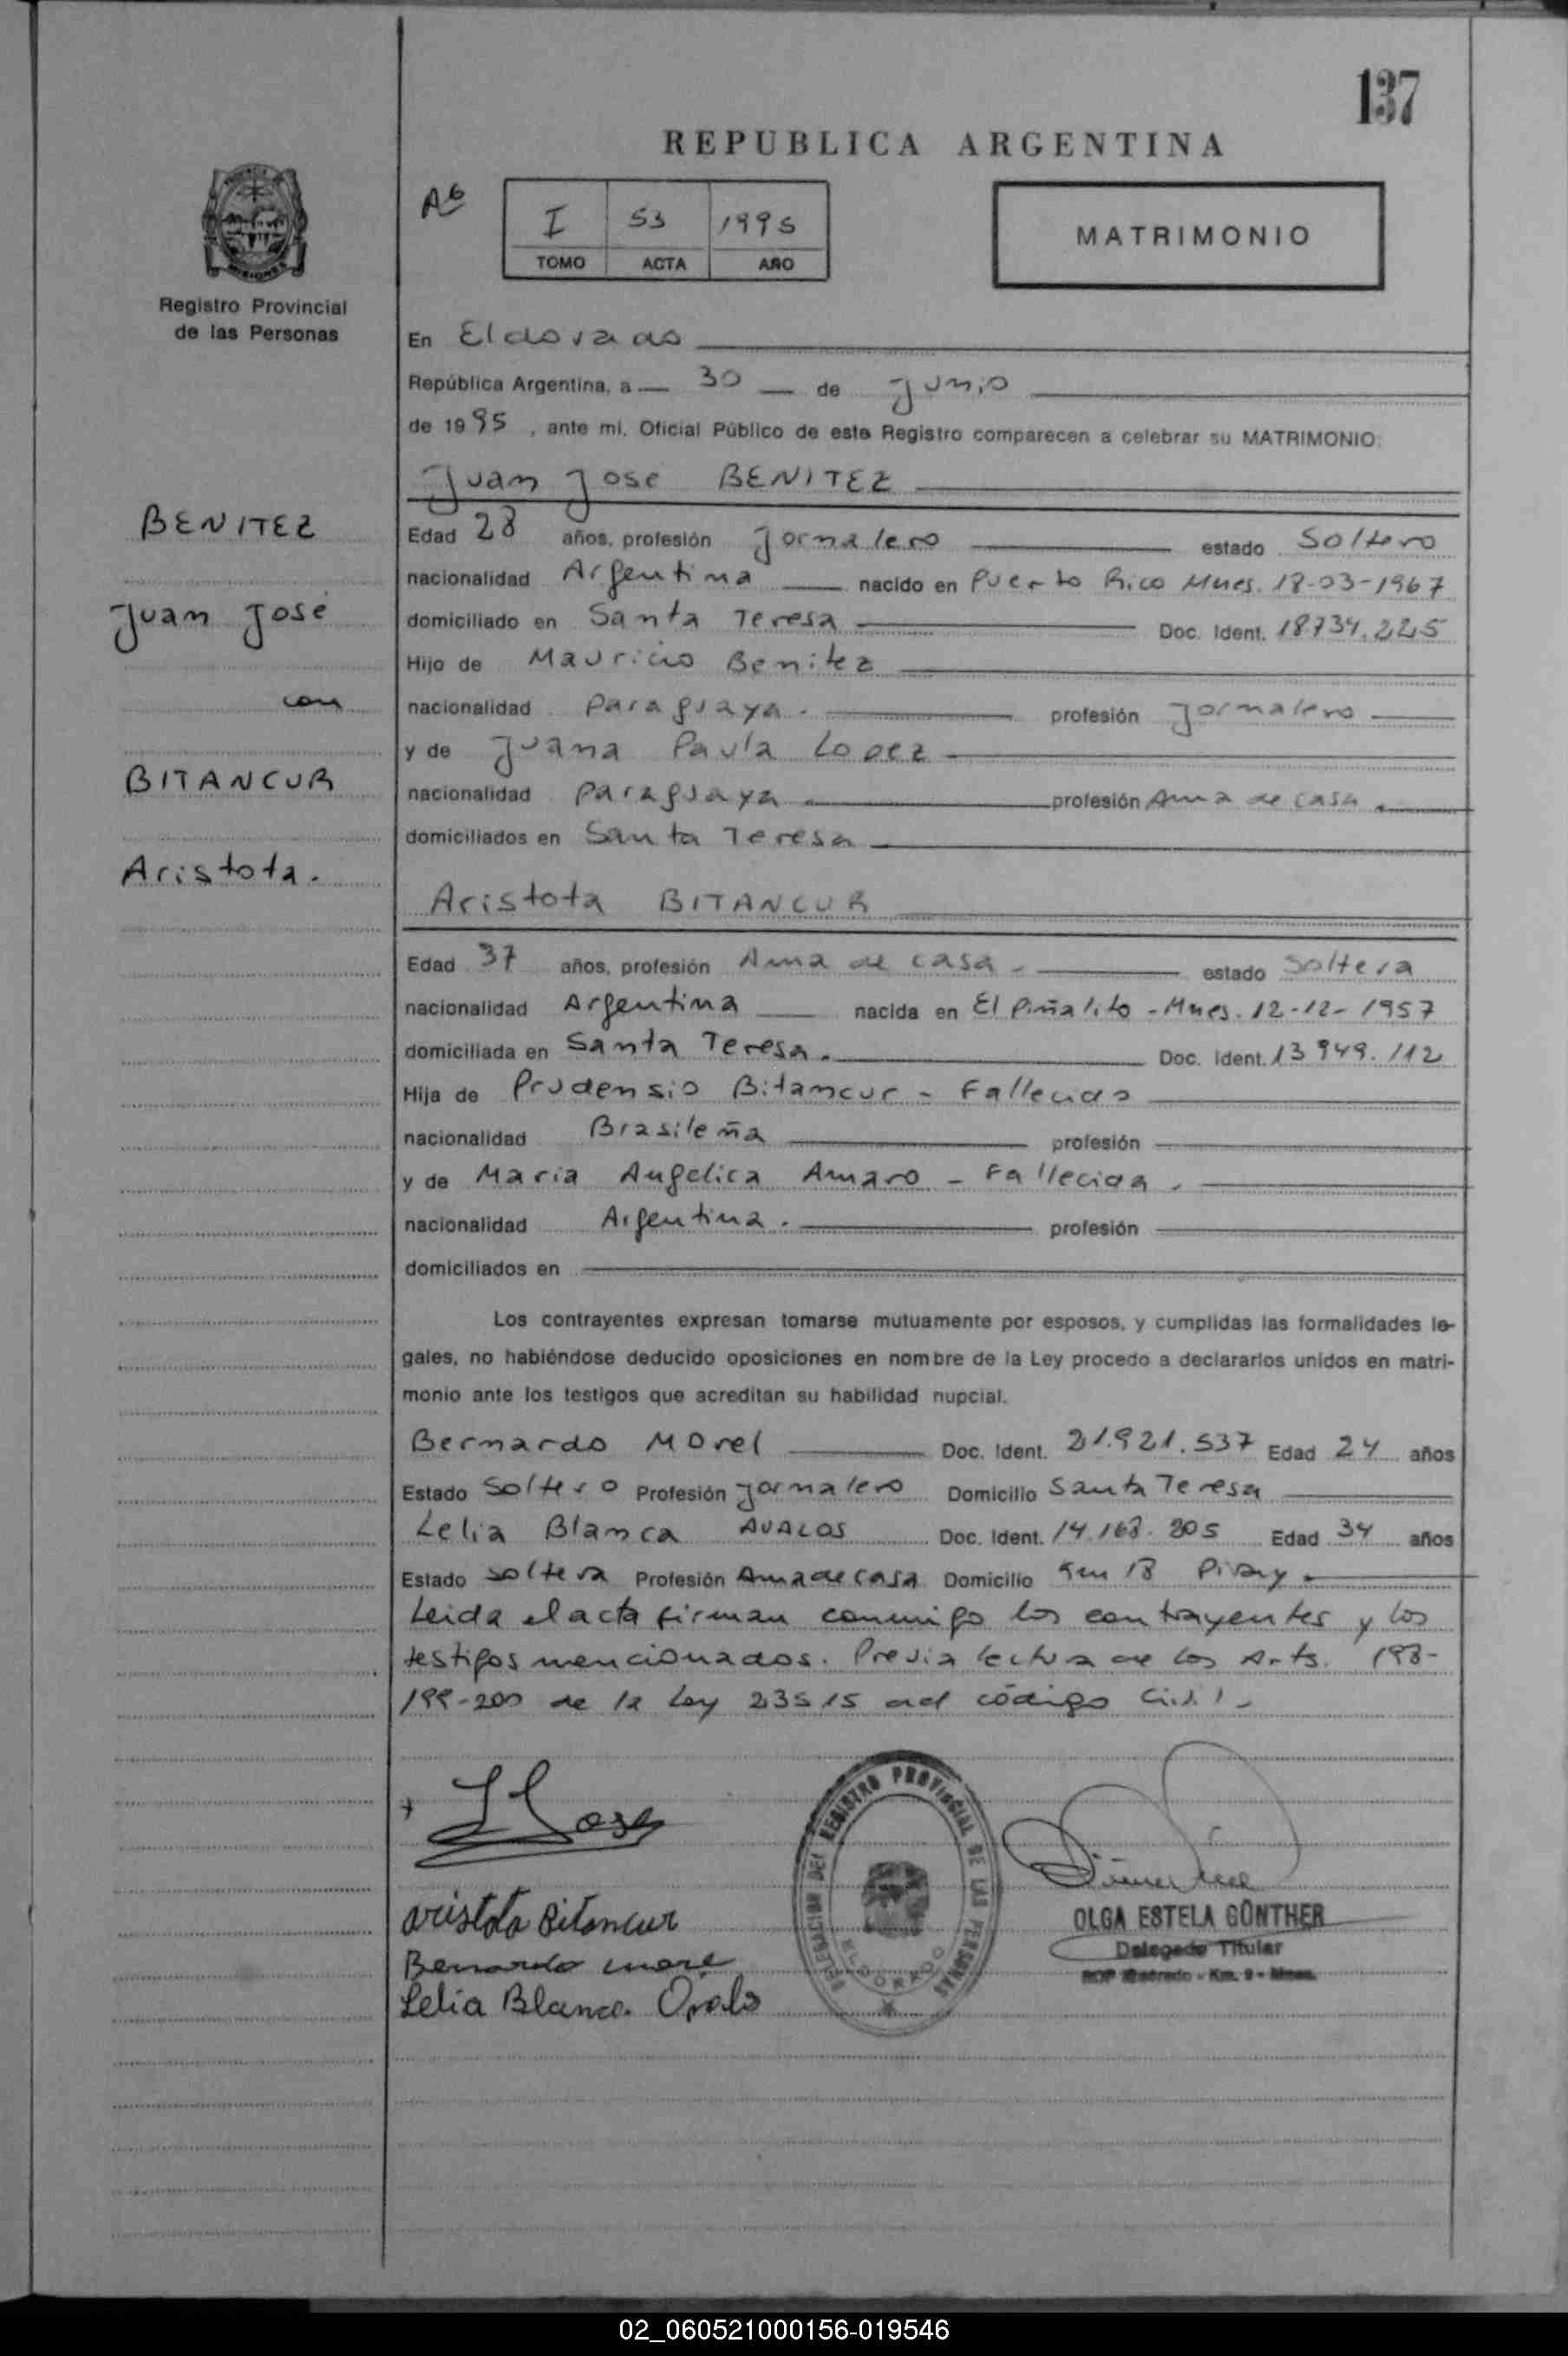 137
REPUBLICA ARGENTINA
I 53 1995
TOMO ACTA AÑO
MATRIMONIO
Registro Provincial
de las Personas
En Eldorado
República Argentina, a 30 de Junio
de 1995, ante mí, Oficial Público de este Registro comparecen a celebrar su MATRIMONIO:
Juan José BENITEZ
BENITEZ
Juan José
con
BITANCUR
Aristota.
Edad 28 años, profesión Jornalero estado Soltero
nacionalidad Argentina nacido en Puerto Rico Mnes. 18-03-1967
domiciliado en Santa Teresa Doc. Ident. 18734.225
Hijo de Mauricio Benitez
nacionalidad Paraguaya. profesión Jornalero
y de Juana Paula Lopez
nacionalidad Paraguaya. profesión Ama de casa.
domiciliados en Santa Teresa
Aristota BITANCUR
Edad 37 años, profesión Ama de casa. estado Soltera
nacionalidad Argentina nacida en El Piñalito - Mnes. 12-12-1957
domiciliada en Santa Teresa. Doc. Ident. 13949.112
Hija de Prudensio Bitancur - Fallecido
nacionalidad Brasileña profesión
y de Maria Angelica Amaro - Fallecida.
nacionalidad Argentina. profesión
domiciliados en
Los contrayentes expresan tomarse mutuamente por esposos, y cumplidas las formalidades le-
gales, no habiéndose deducido oposiciones en nombre de la Ley procedo a declararlos unidos en matri-
monio ante los testigos que acreditan su habilidad nupcial.
Bernardo Morel Doc. Ident. 21.921.537 Edad 24 años
Estado Soltero Profesión Jornalero Domicilio Santa Teresa
Lelia Blanca AVALOS Doc. Ident. 14.168.205 Edad 34 años
Estado Soltera Profesión Ama de casa Domicilio Km 18 Piray.
Leida el acta firman conmigo los contrayentes y los
testigos mencionados. Previa lectura de los Arts. 198-
199-200 de la Ley 23515 del código Civil-
Aristota Bitancur
Bernardo more
Lelia Blanca
DELEGACION DEL REGISTRO PROVINCIAL DE LAS PERSONAS
ELDORADO
OLGA ESTELA GÜNTHER
Delegado Titular
02_060521000156-019546